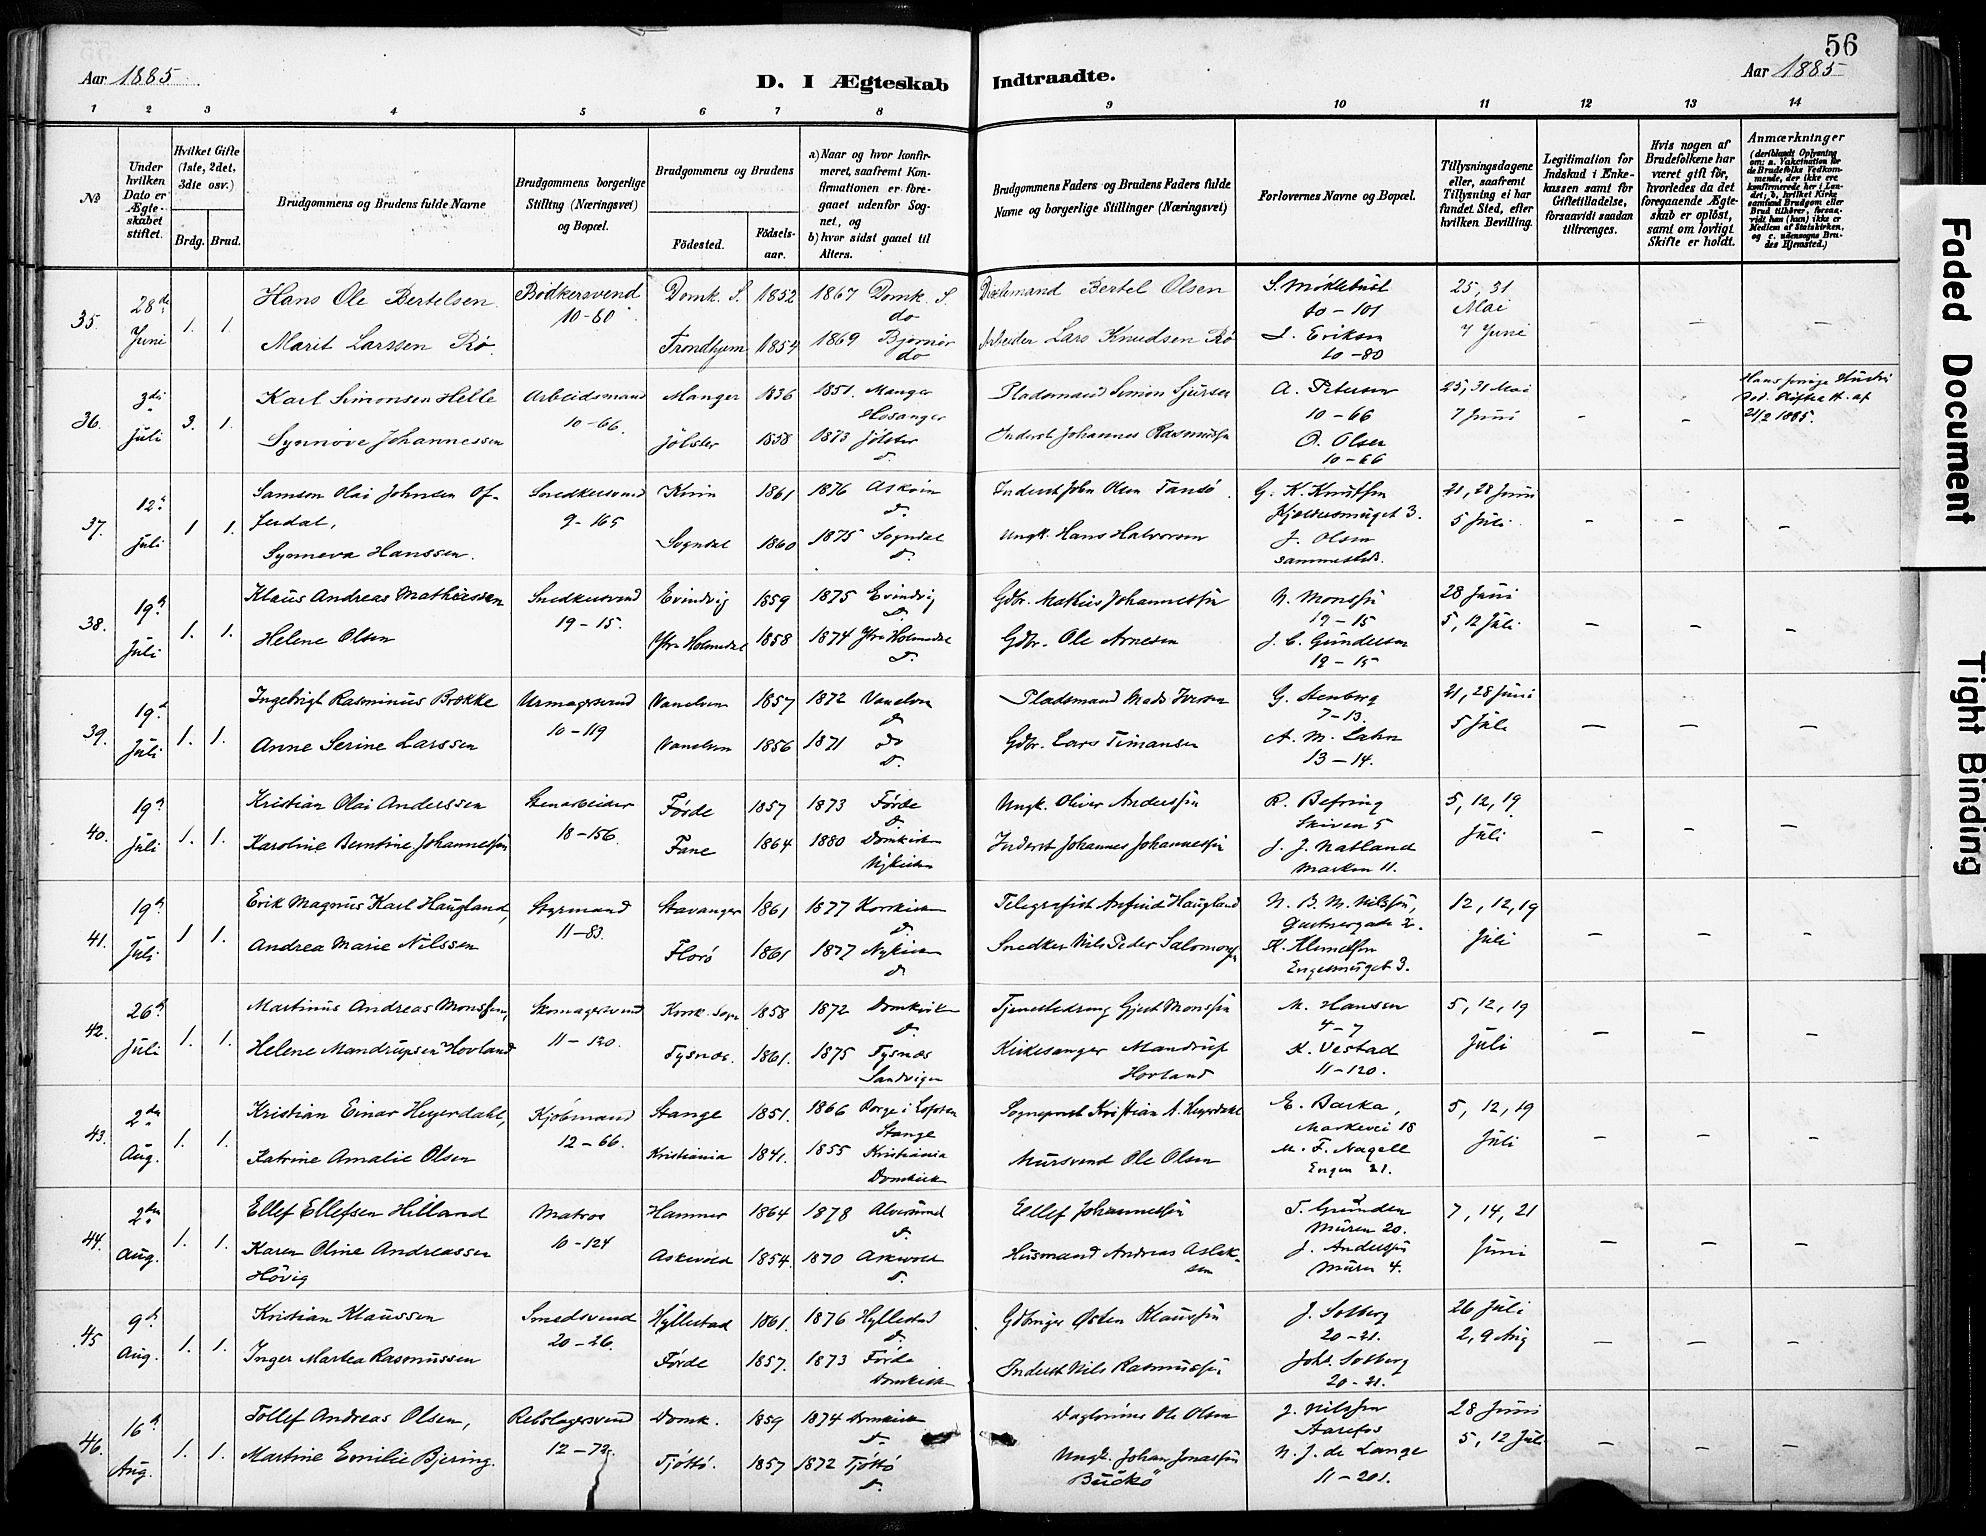 56
Aar 1885
D. I Ægteskab Indtraadte.
Aar 1885
1 2 3 4 5 6 7 8 9 10 11 12 13 14
No
Under hvilken Dato er Ægteskabet stiftet.
Hvilket Gifte (1ste, 2det, 3die osv.)
Brdg. Brud.
Brudgommens og Brudens fulde Navne
Brudgommens borgerlige Stilling (Næringsvei) og Bopæl.
Brudgommens og Brudens
Fødested.
Fødselsaar.
a) Naar og hvor konfirmeret, saafremt Konfirmationen er foregaaet udenfor Sognet, og
b) hvor sidst gaaet til Alters.
Brudgommens Faders og Brudens Faders fulde Navne og borgerlige Stillinger (Næringsvei)
Forlovernes Navne og Bopæl.
Tillysningsdagene eller, saafremt Tillysning ei har fundet Sted, efter hvilken Bevilling.
Legitimation for Indskud i Enkekassen samt for Giftetilladelse, forsaavidt saadan tiltrænges.
Hvis nogen af Brudefolkene har været gift før, hvorledes da det foregaaende Ægteskab er opløst, samt om lovligt Skifte er holdt.
Anmærkninger (deriblandt Oplysning om: a. Vakcination for de Brudefolks Vedkommende, der ikke ere konfirmerede her i Landet, b. hvilket Kirkesamfund Brudgom eller Brud tilhører, forsaavidt han (hun) ikke er Medlem af Statskirken, og c. udensogns Brudes Hjemsted.)
35. 28de Juni 1. 1.
Hans Ole Bertelsen Bødkersvend 10-80 Domk. S. 1852 1867 Domk. S. do Bertel Olsen S. Møklebust 10-101 25, 31 Mai
Marit Larssen Rø Trondhjem 1854 1869 Bjørnør do Arbeider Lars Knudsen Rø L. Eriksen 10-80 7 Juni
36. 3die Juli 3. 1.
Karl Simonsen Helle Arbeidsmand 10-66 Manger 1836 1851 Manger Hosanger Pladsmand Simon Sjursen A. Petersen 10-66 25, 31 Mai
Synnøve Johannessen Jølster 1858 1873 Jølster d. Inderst Johannes Rasmussen O. Olsen 10-66 7 Juni
Hans forrige Hustru død. Skifteatt. af 21/2 1885.
37. 12te Juli 1 1.
Samson Olai Johnsen Oferdal, Snedkersvend 9-165 Kinn 1861 1876 Askvin d. Inderst John Olsen Tansø G. K. Knutsen Kjeldersmuget 3. 21, 28 Juni
Synneva Hanssen. Sogndal 1860 1875 Sogndal d. Ungk. Hans Halvorsen J. Olsen sammesteds. 5 Juli
38. 19de Juli 1. 1.
Klaus Andreas Mathiassen Snedkersvend 19-15. Evindvig 1859 1875 Evindvig d. Gdbr. Mathies Johannessen N. Monssen 19-15 28 Juni
Helene Olsen Ytre Holmedal 1858 1874 Ytre Holmedal d. Gdbr. Ole Arnesen J. C. Gundersen 19-15 5, 12 Juli
39. 19de Juli 1. 1.
Ingebrigt Rasminus Brække Urmagersvend 10-119 Vanelven 1857 1872 Vanelven d. Pladsmand Mads Iversen G. Stenberg 7-13. 21, 28 Juni
Anne Serine Larssen Vanelven 1856 1871 do d. Gdbr. Lars Timansen A. M. Lahn 13-14. 5 Juli
40. 19de Juli 1. 1.
Kristian Olai Anderssen Stenarbeider 18-156. Førde 1857 1873 Førde d. Ungk. Oliver Anderssen R. Befring Skiven 5 5, 12, 19
Karoline Berntine Johannessen Fane 1864 1880 Domkirken Nykirken Inderst Johannes Johannessen J. J. Natland Marken 11. Juli
41. 19de Juli 1 1.
Erik Magnus Karl Haugland, Styrmand 11-83. Stavanger 1861 1877 Korskirken d. Telegrafist Arfind Haugland N. B. M. Nilssen, 12, 12, 19
Andrea Marie Nilssen Florø 1861 1877 Nykirken d. Snedker Nils Peder Salomonsen K. Klemetsen Engesmuget 3. Juli
42. 26de Juli 1. 1.
Martinus Andreas Monssen, Skomagersvend 11-120. Korsk. Sogn 1858 1872 Domkirken d. Tjenestedreng Gjert Monssen M. Hanssen 4-7 5, 12, 19
Helene Mandrupsen Hovland Tysnæs. 1861. 1875 Tysnæs Sandvigen Kirkesanger Mandrup Hovland K. Vestad 11-120. Juli
43. 2den Aug. 1. 1.
Kristian Einar Heyerdahl, Kjøbmand 12-66. Stange 1851. 1866 Borge i Lofoten Stange Sogneprest Kristian A. Heyerdahl E. Barka, Markevei 18 5, 12, 19
Katrine Amalie Olsen Kristiania 1841. 1855 Kristiania Domkirk Mursvend Ole Olsen M. F. Nagell Engen 21. Juli
44. 2den Aug. 1. 1.
Ellef Ellefsen Hilland Matros 10-124 Hammer 1864 1878 Alversund d. Ellef Johannessen T. Grunden Muren 20. 7, 14, 21
Karen Oline Andreassen Høvig Askevold 1854. 1870 Askevold d. Husmand Andreas Aslaksen J. Anderssen Muren 4. Juni
45 9de Aug. 1. 1.
Kristian Klaussen Smedsvend 20-26. Hyllestad 1861. 1876 Hyllestad d. Gdbruger Østen Klaussen J. Solberg 20-21. 26 Juli
Inger Martea Rasmussen Førde 1857. 1873 Førde Domkirk Inderst Nils Rasmussen Johs. Solberg 20-21. 2, 9 Aug
46. 16de Aug. 1. 1.
Tollef Andreas Olsen, Rebslagersvend 12-72. Domk. 1859 1874 Domkirken d. Daglønner Ole Olsen J. Nilssen 28 Juni
Martine Emilie Bjering. Tjøttø. 1857 1872 Tjøttø d. Ungk. Johan Jonassen Buckø N. J. de Lange 11-201. 5, 12 Juli
Faded Document
Tight Binding